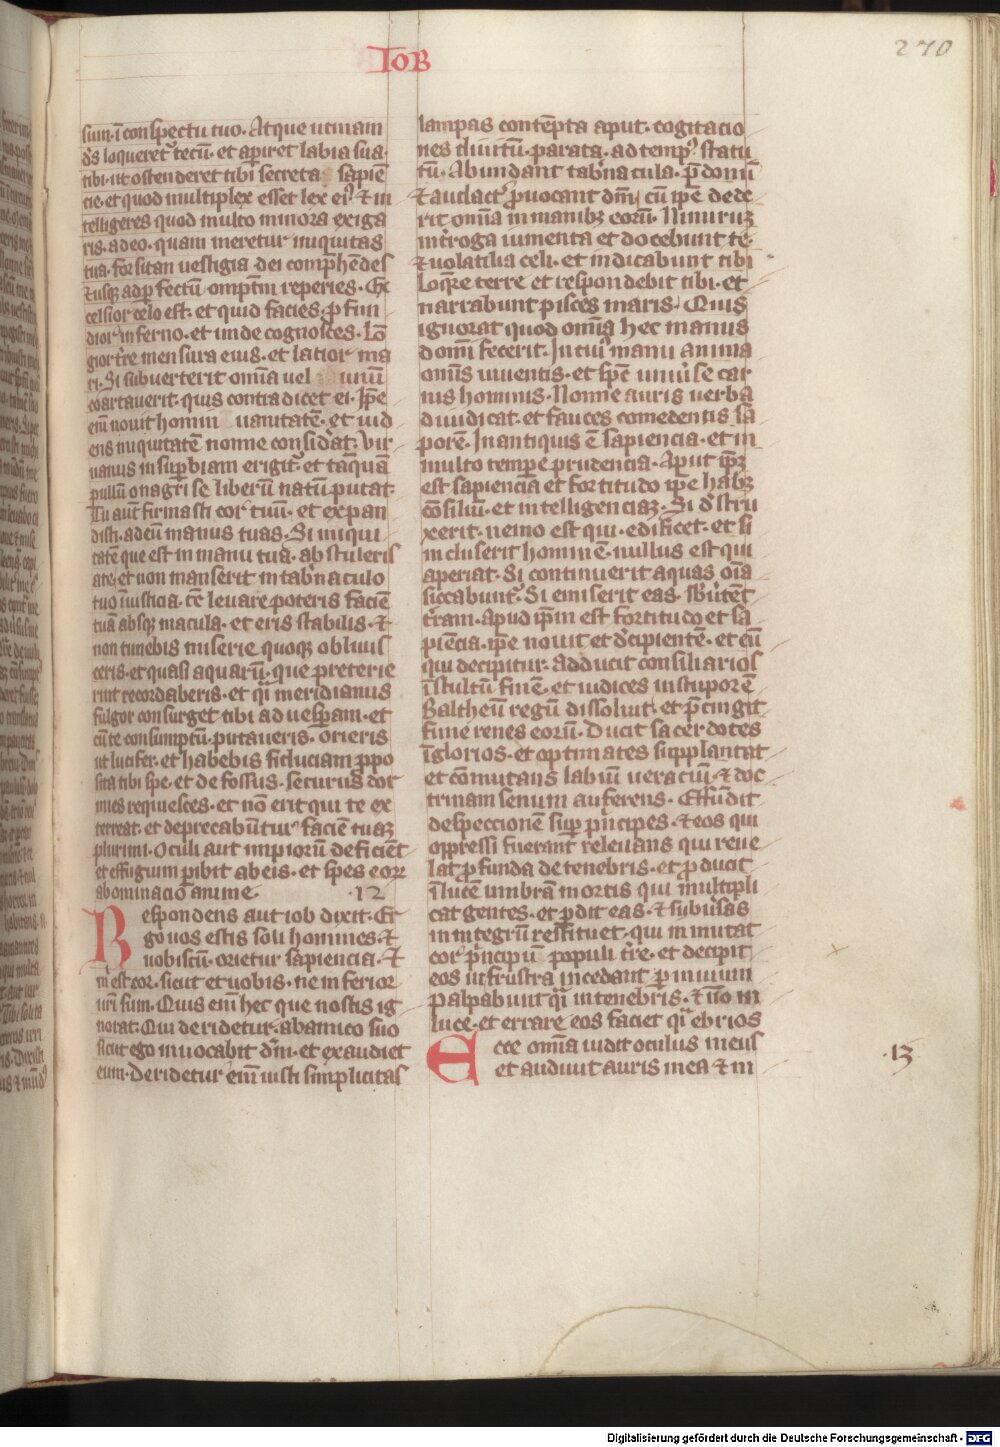 270
IOB
sum. ī conspectu tuo. Atque utinam
ds̄ loqueret᷑ tecū. et apiret labia sua
tibi. ut ostenderet tibi secreta sapiē
cie. et quod multiplex esset lex eiꝰ ⁊ in
telligeres quod multo minora exiga
ris. ab eo. quam meretur iniquitas
tua. forsitan uestigia dei comp̄hēdes
⁊ usqꝫ ad ꝑfectū omp̄tm̄ reperies. Ex
celsior celo est. et quid facies. ꝓfun
dior inferno. et unde cognosces. Lō
gior t̄re mensura eius. et latior ma
ri. Si subuerterit om̄ia uel unū
coartauerit. quis contradicet ei. Ip̄e
em̄ nouit homini uanitatē. et uid
ens iniquitatē nonne considat. Vir
uanus in supbiam erigit᷑. et tāquā
pullū onagri se liberū natū putat
Tu aut̄ firmasti cor tuū. et expan
disti. ad eū manus tuas. Si iniqui
tatē que est in manu tua. abstuleris
a te. et non manserit in tab̄naculo
tuo iniusticia. tc̄ leuare poteris faciē
tuā absqꝫ macula. et eris stabilis. ⁊
non timebis miserie quoqꝫ obliuis
ceris. et quasi aquarū. que preterie
rint recordaberis. et q̄i meridianus
fulgor consurget tibi ad uesꝑam. et
cū te consumptū. putaueris. orieris
ut lucifer. et habebis fiduciam ꝓpo
sita tibi spe. et defossus. securus dor
mies requiesces. et nō erit qui te ex
terreat. et deprecabūtur faciē tuaꝫ
plurimi. Oculi aut impiorū deficiēt
et effugium ꝑibit ab eis. et spes eoꝝ
abominacō anime. .12
Respondens aut iob dixit. Er
go uos estis soli homines. ⁊
uobiscū. orietur sapiencia. ⁊
m̄ est cor. sicut et uobis. ne inferior
ur̄i sum. Quis em̄ hec que nostis ig
norat. Qui deridetur. ab amico suo
sicut ego inuocabit dm̄. et exaudiet
eum. Deridetur em̄ iusti simplicitas
lampas contēpta aput. cogitacio
nes diuitū. parata. ad tempꝰ statu
tū. Abundant tab̄nacula. p̄donū
⁊ audact᷑ ꝓuocant dm̄. cū ip̄e dede
rit om̄ia in manibꝫ eorū. Nimiruꝫ
int̄roga iumenta et docebunt te.
⁊ uolatilia celi. et indicabunt tibi
Loq̄re terre et respondebit tibi. et
narrabunt pisces maris. Quis
ignorat quod om̄ia hec manus
domī fecerit. In cuiꝰ manu anima
om̄is uiuentis. et sp̄c uniuse car
nis hominis. Nonne auris uerba
diiudicat. et fauces comedentis sa
porē. In antiquis ē sapiencia. et in
multo tempe prudencia. Aput ip̄ꝫ
est sapiencia et fortitudo ip̄e habꝫ
cōsiliū. et intelligenciaꝫ. Si dstru
xerit. nemo est qui. edificet. et si
incluserit hominē. nullus est qui
aperiat. Si continuerit aquas oīa
siccabunt᷑. Si emiserit eas. sbūtēt
t̄ram. Apud ip̄m est fortitudo et sa
piēcia. ip̄e nouit et dcipientē. et eū
qui decipitur. adducit consiliarios
ī stultū finē. et iudices in stuporē
Baltheū regū dissoluit. et p̄cingit
fune renes eorū. Ducit sacerdotes
īglorios. et optimates supplantat
et cōmutans labiū ueraciū. ⁊ doc
trinam senum auferens. Effūdit
despeccionē sup p̄ncipes. ⁊ eos qui
oppressi fuerant releuans qui reue
lat ꝓfunda de tenebris. et ꝓducit
ī lucē umbrā mortis qui multipli
cat gentes. et ꝑdit eas. ⁊ subusas
in integrū restituet. qui inmutat
cor p̄ncipū populi t̄re. et decipit
eos ut frustra incedant ꝑ inuium
Palpabunt q̄i in tenebris. ⁊ nō in
luce. et errare eos faciet q̄i ebrios
Ecce om̄ia uidit oculus meus
et audiuit auris mea ⁊ in
.13
Digitalisierung gefördert durch die Deutsche Forschungsgemeinschaft - DFG